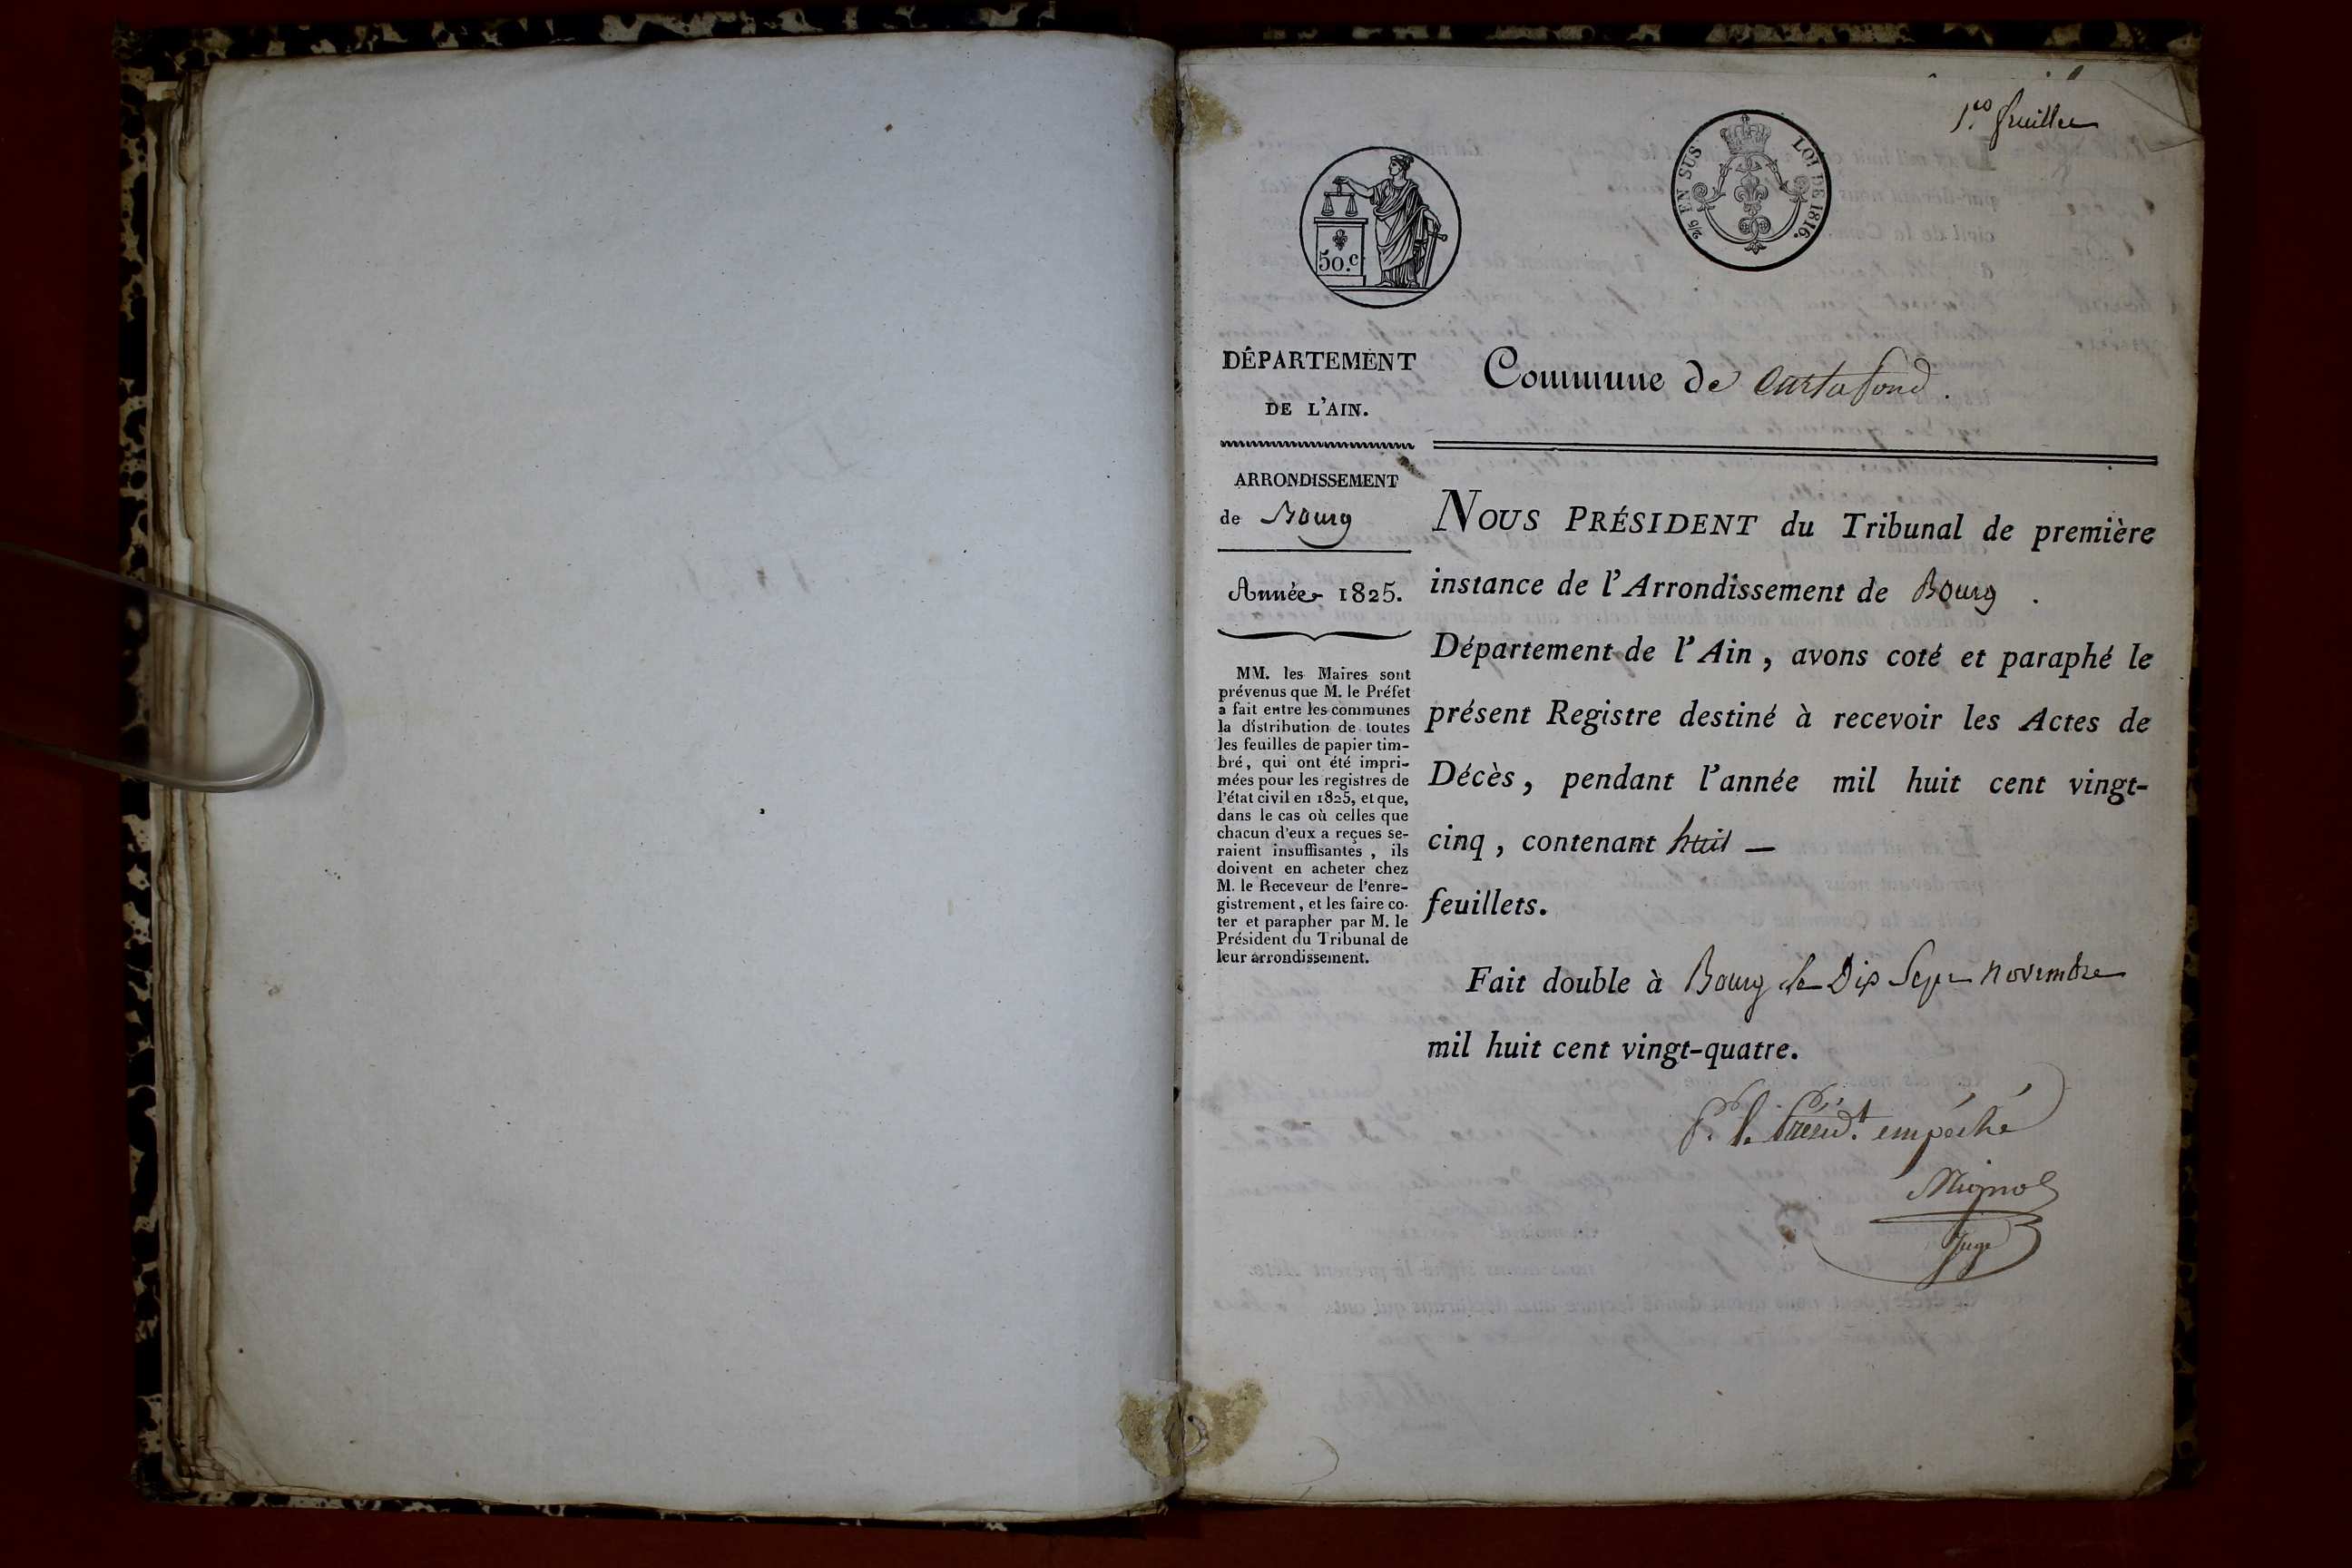 1.er feuillet
2/5 EN SUS LOI DE 1816.
50.c
DÉPARTEMENT
DE L'AIN.
Commune de Curtafond.
ARRONDISSEMENT
de Bourg
Année 1825.
MM. les Maires sont
prévenus que M. le Préfet
a fait entre les communes
la distribution de toutes
les feuilles de papier tim-
bré, qui ont été impri-
mées pour les registres de
l'état civil en 1825, et que,
dans le cas où celles que
chacun d'eux a reçues se-
raient insuffisantes, ils
doivent en acheter chez
M. le Receveur de l'enre-
gistrement, et les faire co-
ter et parapher par M. le
Président du Tribunal de
leur arrondissement.
NOUS PRÉSIDENT du Tribunal de première
instance de l'Arrondissement de Bourg.
Département de l'Ain, avons coté et paraphé le
présent Registre destiné à recevoir les Actes de
Décès, pendant l'année mil huit cent vingt-
cinq, contenant huit —
feuillets.
Fait double à Bourg le Dix Sept novembre
mil huit cent vingt-quatre.
P. le Présid.t empéché
Mignot
Juge